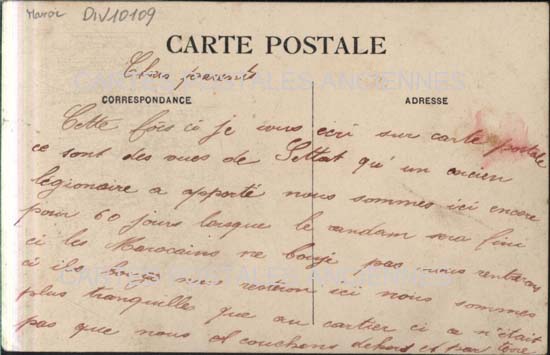 Maroc DIV10109
CARTE POSTALE
Chers parents
CARTES POSTALES ANCIENNES
CORRESPONDANCE
ADRESSE
Cette fois ci je vous écri sur carte postale
ce sont des vues de Settat qu'un ancien
légionaire a apporté nous sommes ici encore
pour 60 jours lorsque le randam sera fini
ci les Marocains ne bouje pas nous rentrerons
CARTES POSTALES ANCIENNES
ci ils bouje nous resteron ici nous sommes
plus tranquilles que au cartier ci ce n'était
pas que nous couchons dehors et par terre